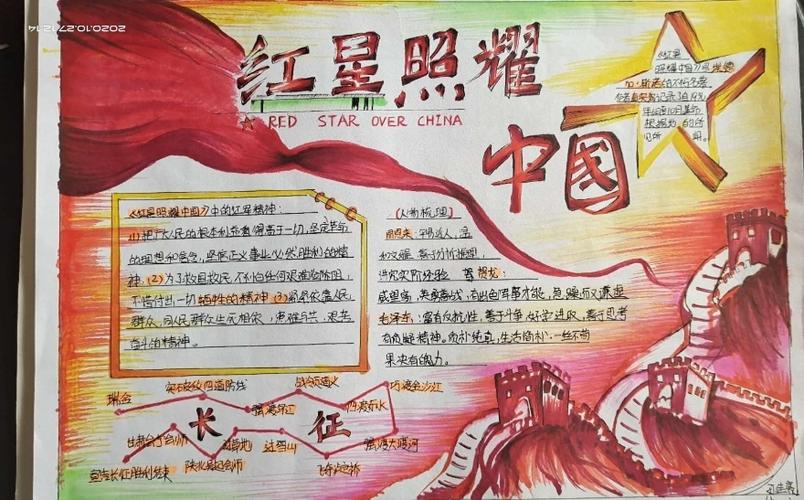 2020.10.27 12:14
红星照耀
中国
RED STAR OVER CHINA
《红星
照耀中国》是埃德
加·斯诺的不朽名著
《红星照耀中国》中的红军精神：
(1)把广大人民的根本利益看得高于一切，坚定革命
的理想和信念，坚信正义事业必然胜利的精
神。(2)为了救国救民，不怕任何艰难险阻，
不惜付出一切牺牲的精神(3)紧紧依靠人民
群众，同人民群众生死相依，患难与共，艰苦
奋斗的精神。
(人物梳理)
周恩来：平易近人，
和文雅，善于分析推理，
讲究实际经验 贺龙：
威望高，英勇善战，有出色军事才能，急躁而又谦虚
毛泽东：富有反抗性，善于斗争，好学进取，善于思考
有质疑精神。质朴纯真，生活简朴，一丝不苟
果决有魄力。
瑞金
突破敌四道防线
强渡乌江
战领遵义
四渡赤水
巧渡金沙江
强渡大渡河
飞夺泸定桥
过雪山
过草地
陕北吴起会师
甘肃会宁会师
宣告长征胜利结束
长
征